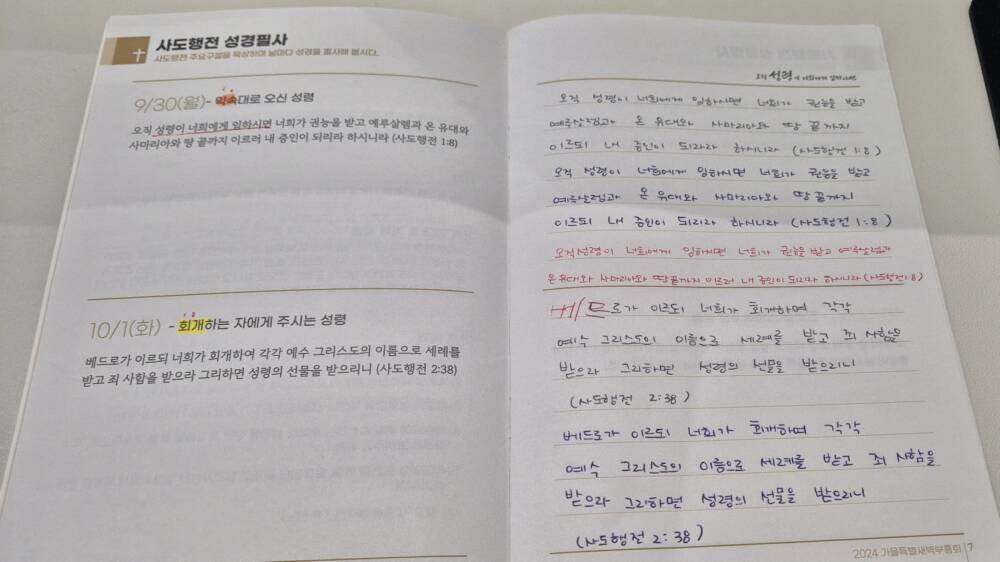 사도행전 성경필사
사도행전 주요구절을 묵상하며 날마다 성경을 필사해 봅시다.
9/30(월) - 약속대로 오신 성령
오직 성령이 너희에게 임하시면 너희가 권능을 받고 예루살렘과 온 유대와
사마리아와 땅 끝까지 이르러 내 증인이 되리라 하시니라 (사도행전 1:8)
10/1(화) - 회개하는 자에게 주시는 성령
베드로가 이르되 너희가 회개하여 각각 예수 그리스도의 이름으로 세례를
받고 죄 사함을 받으라 그리하면 성령의 선물을 받으리니 (사도행전 2:38)
오직 성령이 너희에게 임하시면
오직 성령이 너희에게 임하시면 너희가 권능을 받고
예루살렘과 온 유대와 사마리아와 땅 끝까지
이르되 내 증인이 되리라 하시니라 (사도행전 1:8)
오직 성령이 너희에게 임하시면 너희가 권능을 받고
예루살렘과 온 유대와 사마리아와 땅 끝까지
이르되 내 증인이 되리라 하시니라 (사도행전 1:8)
오직성령이 너희에게 임하시면 너희가 권능을 받고 예루살렘과
온유대와 사마리아와 땅끝까지 이르러 내 증인이 되리라 하시니라 (사도행전1:8)
베드로가 이르되 너희가 회개하여 각각
예수 그리스도의 이름으로 세례를 받고 죄 사함을
받으라 그리하면 성령의 선물을 받으리니
(사도행전 2:38)
베드로가 이르되 너희가 회개하여 각각
예수 그리스도의 이름으로 세례를 받고 죄 사함을
받으라 그리하면 성령의 선물을 받으리니
(사도행전 2:38)
2024 가을특별새벽부흥회 7